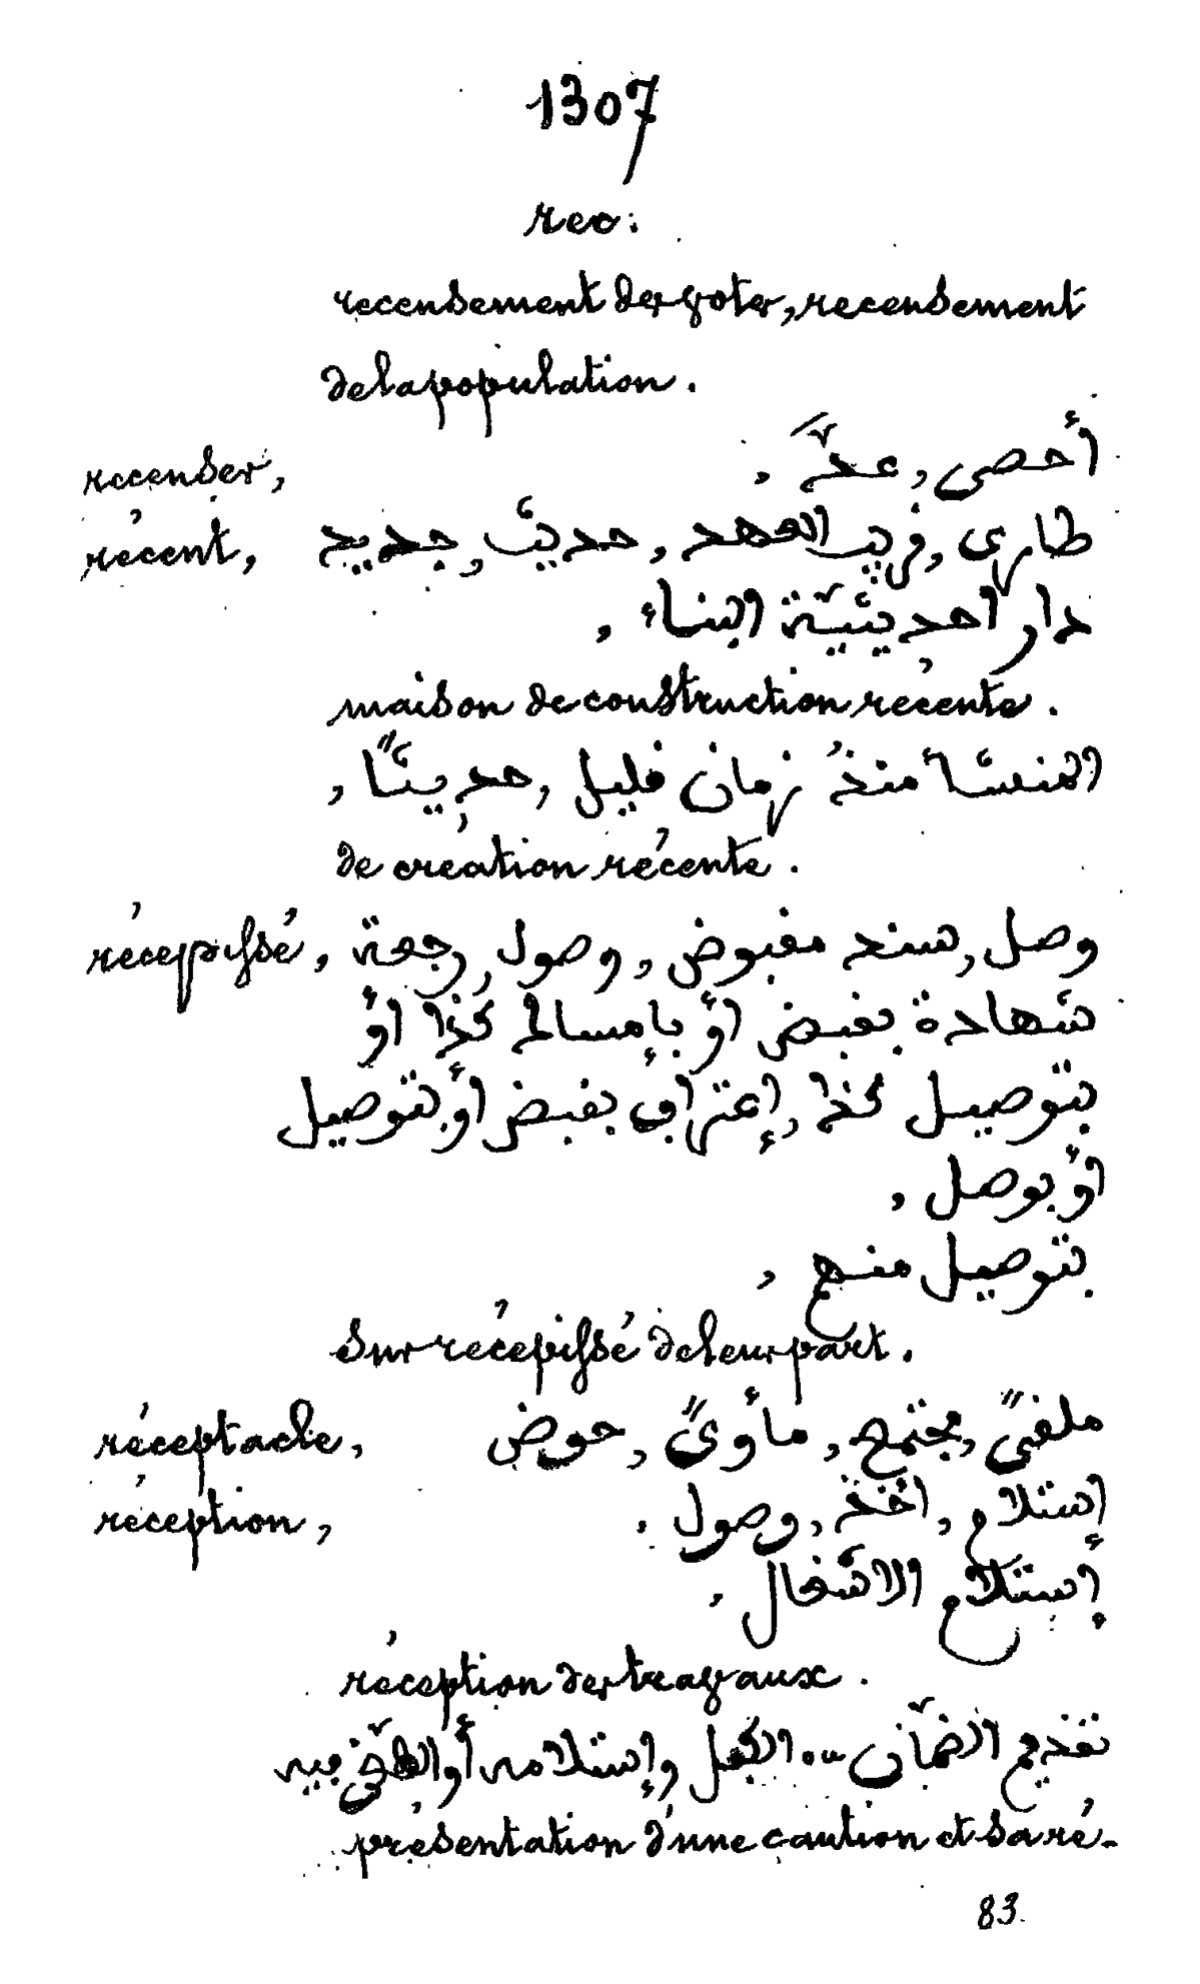 1307
rec:
recensement des votes, recensement
de la population.
recenser, أحصى, عدّ,
récent, طارى, قريب العهد, حديث, جديد
دار احديثيّة البناء,
maison de construction récente.
المنشأ منذُ زمان قليل, حديثًا,
de création récente.
récépissé, وصل, سند مقبوض, وصول, رجعة
شهادة بقبض أوْ بإمسالح كذا أوْ
بتوصيل كذا, إعتراف بقبض أوْ بتوصيل
أوْ بوصل,
بتوصيل منهم,
sur récépissé de leur part.
réceptacle, ملقىً, مجتمع, مأوىً, حوض
réception, إستلام, أخذ, وصول.
إستلام الاشغال,
réception des travaux.
تقديم الضمّان الكفل وإستلامه أو فيه
présentation d'une caution et sa ré-
83.